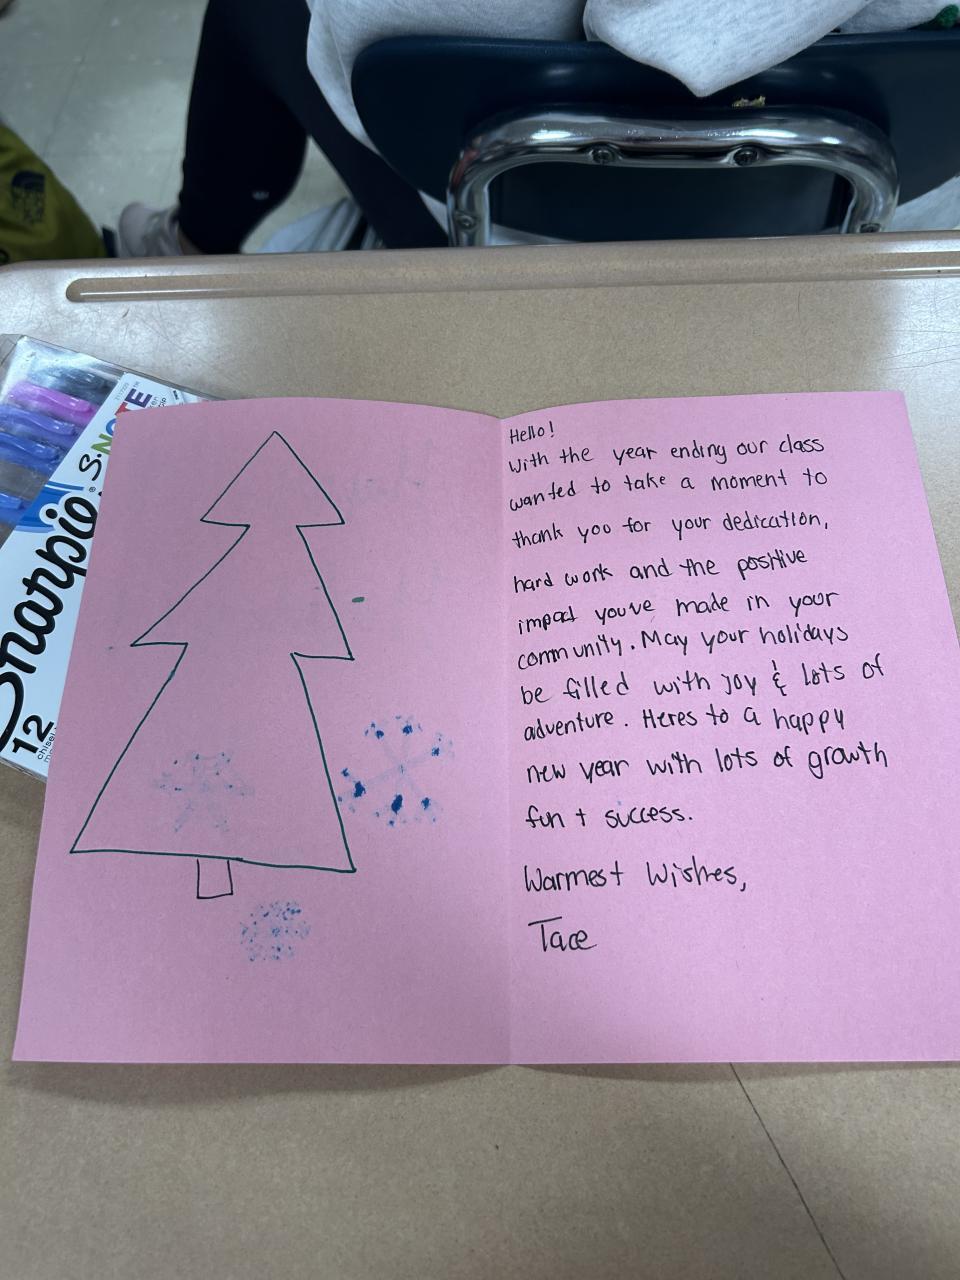 Sharpie
S·NOTE
12
Hello!
With the year ending our class
wanted to take a moment to
thank you for your dedication,
hard work and the positive
impact youve made in your
community. May your holidays
be filled with joy & lots of
adventure. Heres to a happy
new year with lots of growth
fun + success.
Warmest Wishes,
Tace